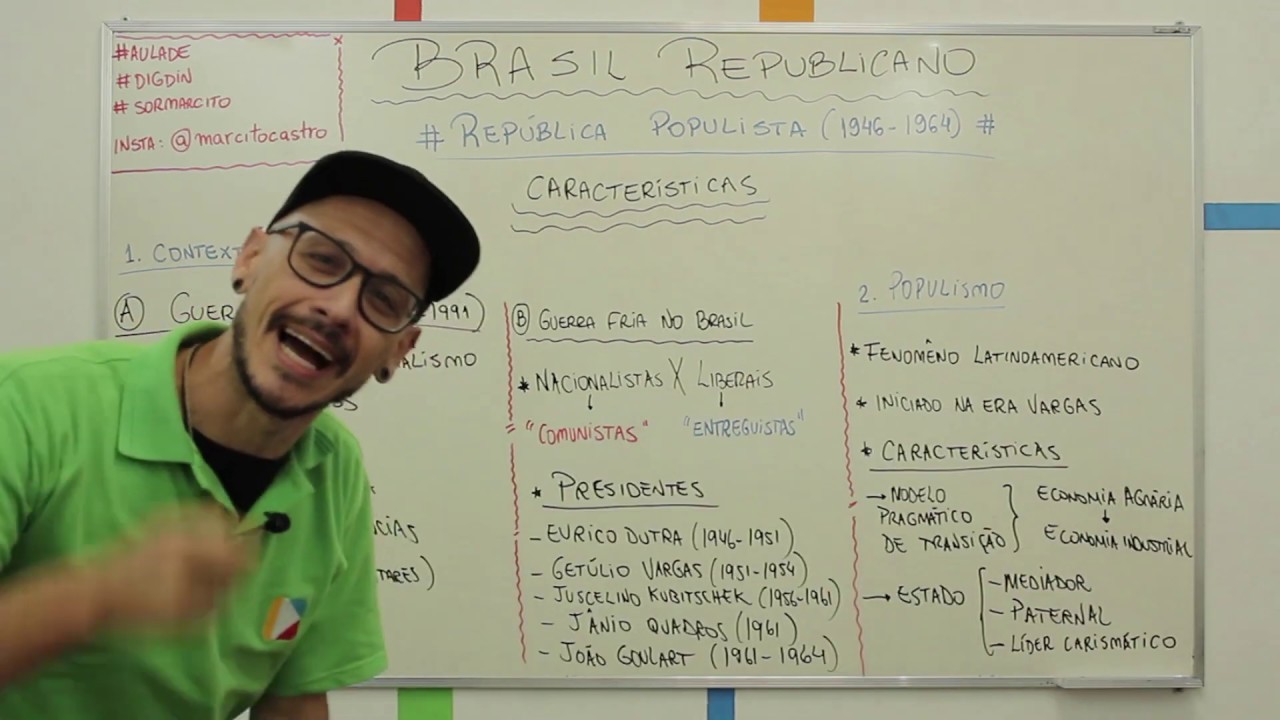 #AULADE
#DIGDIN
#SORMARCITO
INSTA: @marcitocastro
BRASIL REPUBLICANO
# REPÚBLICA POPULISTA (1946-1964) #
CARACTERÍSTICAS
1. CONTEXT
Ⓐ GUER 1991)
ALISMO
OS
CIAS
TARES)
Ⓑ GUERRA FRIA NO BRASIL
* NACIONALISTAS X LIBERAIS
↓ ↓
"COMUNISTAS" "ENTREGUISTAS"
* PRESIDENTES
- EURICO DUTRA (1946-1951)
- GETÚLIO VARGAS (1951-1954)
- JUSCELINO KUBITSCHEK (1956-1961)
- JÂNIO QUADROS (1961)
- JOÃO GOULART (1961-1964)
2. POPULISMO
* FENOMÊNO LATINOAMERICANO
* INICIADO NA ERA VARGAS
* CARACTERÍSTICAS
→ MODELO
PRAGMÁTICO
DE TRANSIÇÃO
ECONOMIA AGRÁRIA
↓
ECONOMIA INDUSTRIAL
→ ESTADO
- MEDIADOR
- PATERNAL
- LÍDER CARISMÁTICO